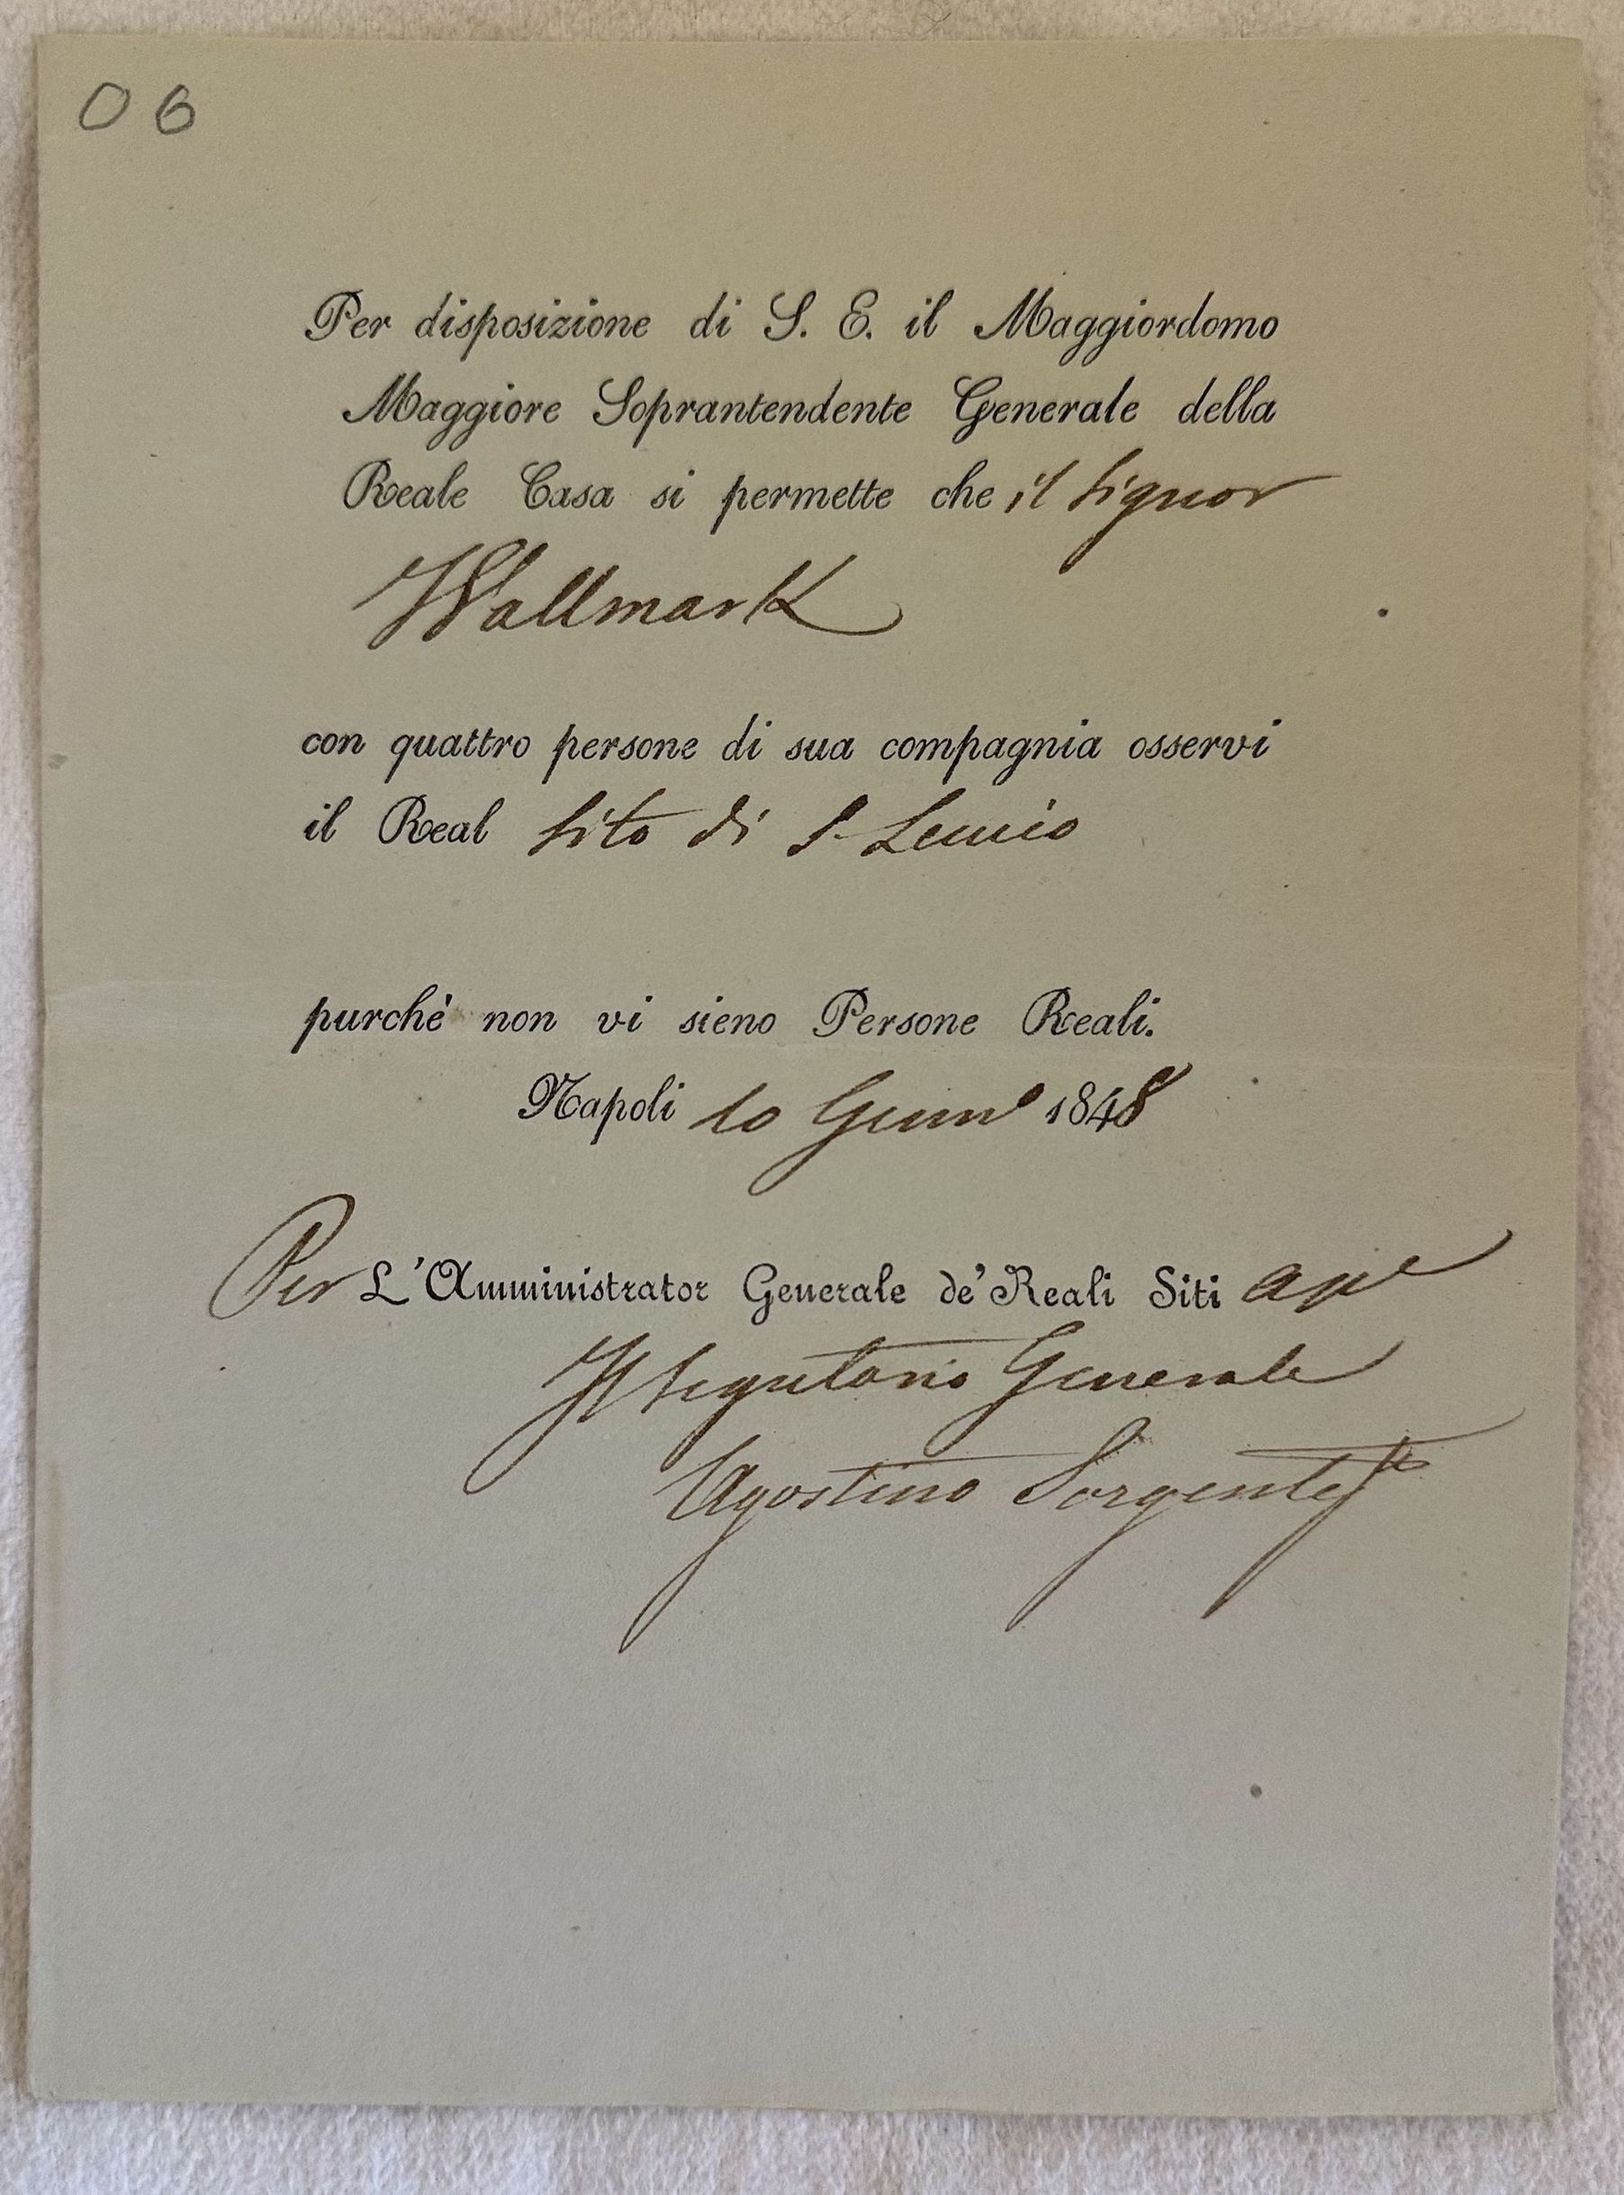 06
Per disposizione di S. E. il Maggiordomo
Maggiore Soprantendente Generale della
Reale Casa si permette che il Signor
Wallmark
con quattro persone di sua compagnia osservi
il Real Sito di S. Leucio
purchè non vi sieno Persone Reali.
Napoli 10 1848
Per L'Amministrator Generale de' Reali Siti
Il Segretario Generale
Agostino Sorgente